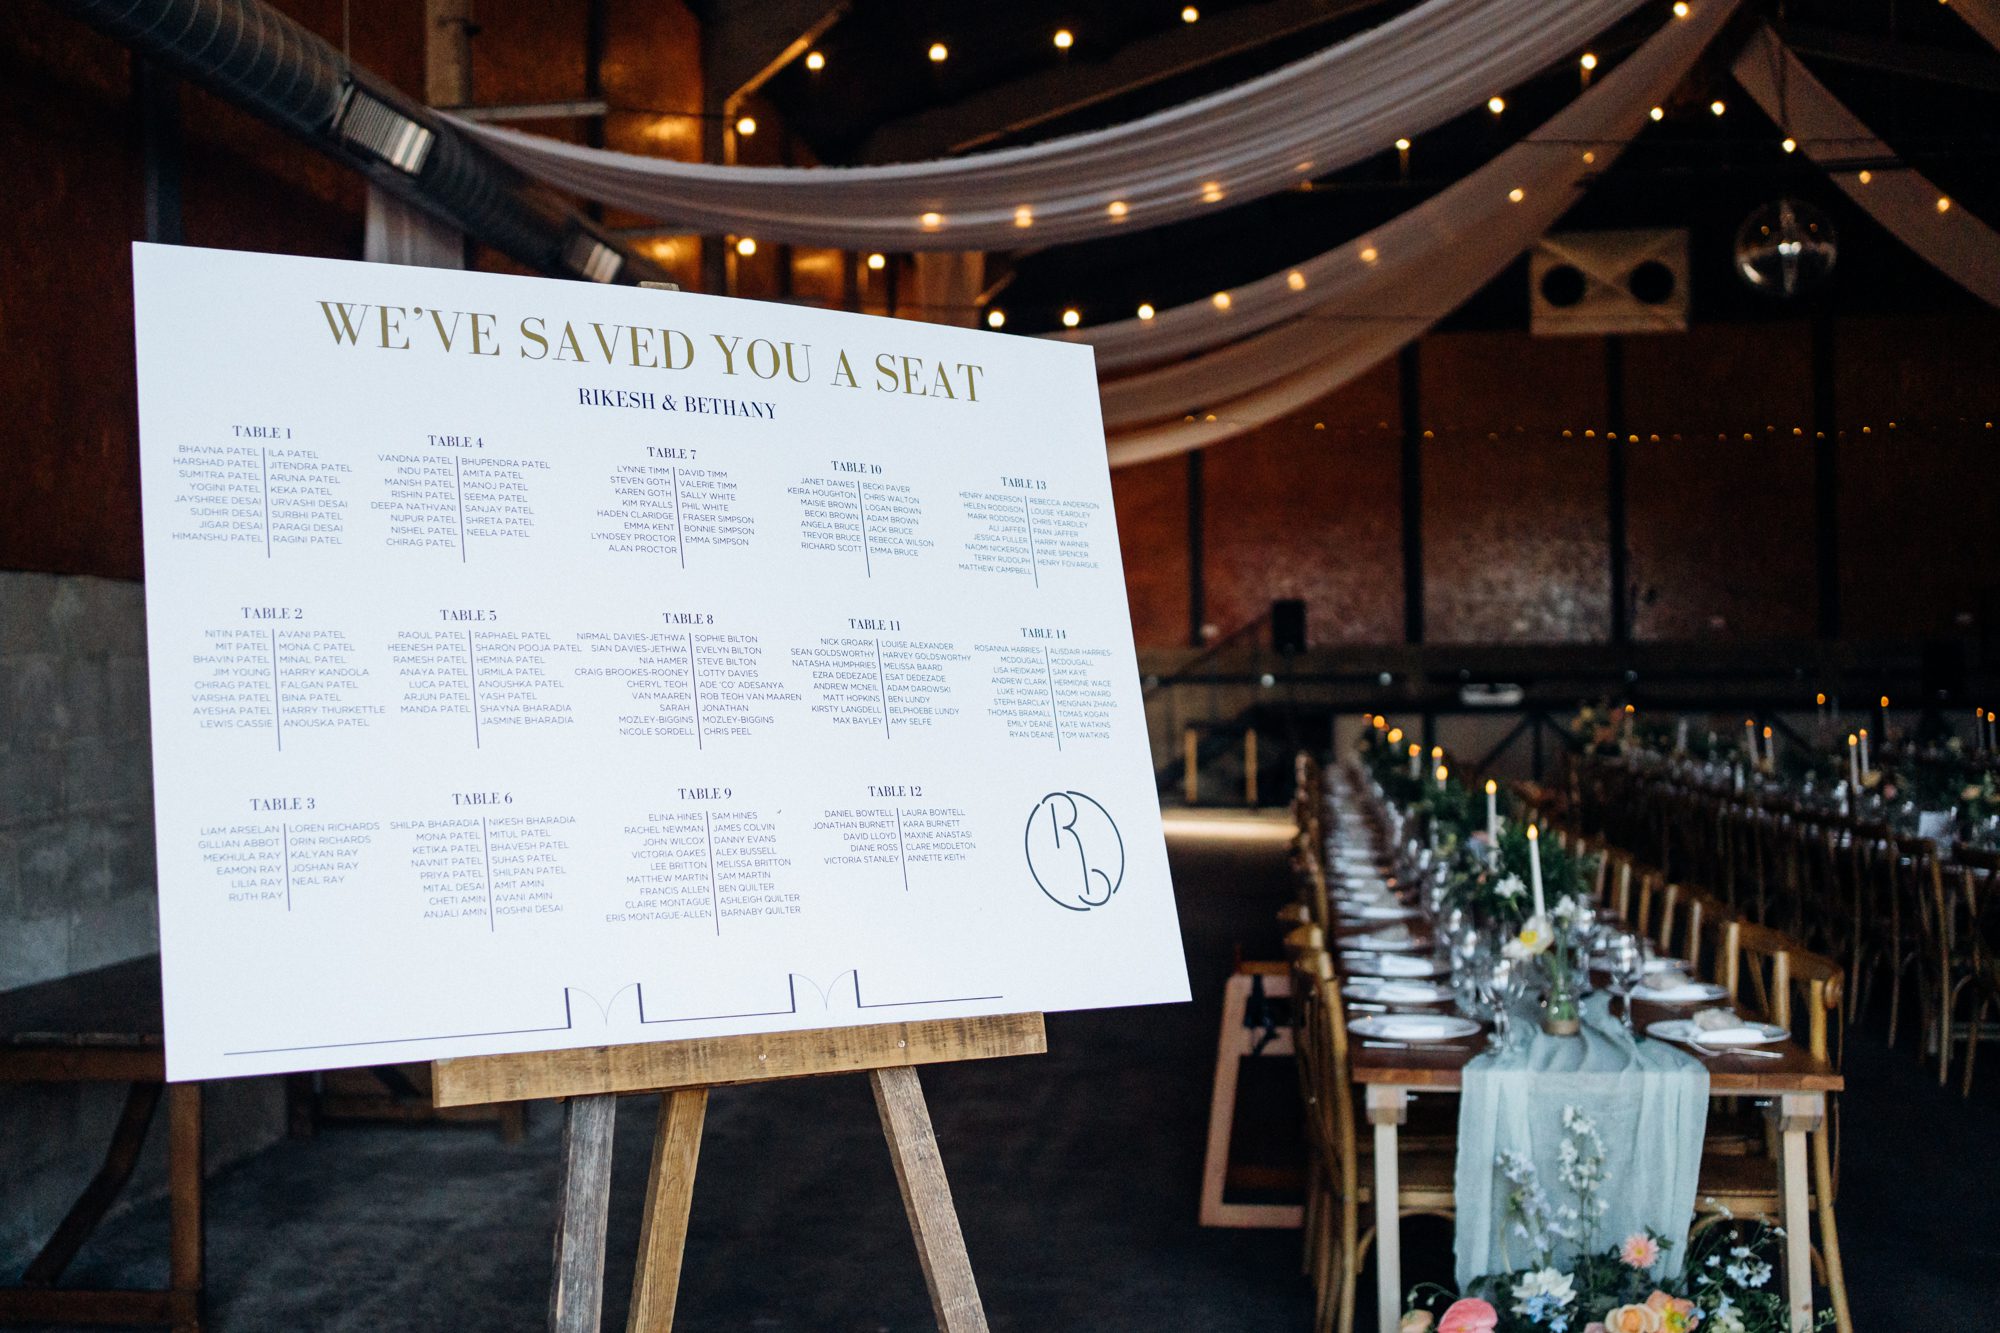 WE'VE SAVED YOU A SEAT
RIKESH & BETHANY
TABLE 1
BHAVNA PATEL ILA PATEL
HARSHAD PATEL JITENDRA PATEL
SUMITRA PATEL ARUNA PATEL
YOGINI PATEL KEKA PATEL
JAYSHREE DESAI URVASHI DESAI
SUDHIR DESAI SURBHI PATEL
JIGAR DESAI PARAGI DESAI
HIMANSHU PATEL RAGINI PATEL
TABLE 4
VANDNA PATEL BHUPENDRA PATEL
INDU PATEL AMITA PATEL
MANISH PATEL MANOJ PATEL
RISHIN PATEL SEEMA PATEL
DEEPA NATHVANI SANJAY PATEL
NUPUR PATEL SHRETA PATEL
NISHEL PATEL NEELA PATEL
CHIRAG PATEL
TABLE 7
LYNNE TIMM DAVID TIMM
STEVEN GOTH VALERIE TIMM
KAREN GOTH SALLY WHITE
KIM RYALLS PHIL WHITE
HADEN CLARIDGE FRASER SIMPSON
EMMA KENT BONNIE SIMPSON
LYNDSEY PROCTOR EMMA SIMPSON
ALAN PROCTOR
TABLE 10
JANET DAWES BECKI PAVER
KEIRA HOUGHTON CHRIS WALTON
MAISIE BROWN LOGAN BROWN
BECKI BROWN ADAM BROWN
ANGELA BRUCE JACK BRUCE
TREVOR BRUCE REBECCA WILSON
RICHARD SCOTT EMMA BRUCE
TABLE 13
HENRY ANDERSON REBECCA ANDERSON
HELEN RODDISON LOUISE YEARDLEY
MARK RODDISON CHRIS YEARDLEY
ALI JAFFER FRAN JAFFER
JESSICA FULLER HARRY WARNER
NAOMI NICKERSON ANNIE SPENCER
TERRY RUDOLPH HENRY FOVARGUE
MATTHEW CAMPBELL
TABLE 2
NITIN PATEL AVANI PATEL
MIT PATEL MONA C PATEL
BHAVIN PATEL MINAL PATEL
JIM YOUNG HARRY KANDOLA
CHIRAG PATEL FALGAN PATEL
VARSHA PATEL BINA PATEL
AYESHA PATEL HARRY THURKETTLE
LEWIS CASSIE ANOUSKA PATEL
TABLE 5
RAOUL PATEL RAPHAEL PATEL
HEENESH PATEL SHARON POOJA PATEL
RAMESH PATEL HEMINA PATEL
ANAYA PATEL URMILA PATEL
LUCA PATEL ANOUSHKA PATEL
ARJUN PATEL YASH PATEL
MANDA PATEL SHAYNA BHARADIA
JASMINE BHARADIA
TABLE 8
NIRMAL DAVIES-JETHWA SOPHIE BILTON
SIAN DAVIES-JETHWA EVELYN BILTON
NIA HAMER STEVE BILTON
CRAIG BROOKES-ROONEY LOTTY DAVIES
CHERYL TEOH ADE 'CO' ADESANYA
VAN MAAREN ROB TEOH VAN MAAREN
SARAH JONATHAN
MOZLEY-BIGGINS MOZLEY-BIGGINS
NICOLE SORDELL CHRIS PEEL
TABLE 11
NICK GROARK LOUISE ALEXANDER
SEAN GOLDSWORTHY HARVEY GOLDSWORTHY
NATASHA HUMPHRIES MELISSA BAARD
EZRA DEDEZADE ESAT DEDEZADE
ANDREW MCNEIL ADAM DAROWSKI
MATT HOPKINS BEN LUNDY
KIRSTY LANGDELL BELPHOEBE LUNDY
MAX BAYLEY AMY SELFE
TABLE 14
ROSANNA HARRIES- ALISDAIR HARRIES-
MCDOUGALL MCDOUGALL
LISA HEIDKAMP SAM KAYE
ANDREW CLARK HERMIONE WACE
LUKE HOWARD NAOMI HOWARD
STEPH BARCLAY MENGNAN ZHANG
THOMAS BRAMALL TOMAS KOGAN
EMILY DEANE KATE WATKINS
RYAN DEANE TOM WATKINS
TABLE 3
LIAM ARSELAN LOREN RICHARDS
GILLIAN ABBOT ORIN RICHARDS
MEKHULA RAY KALYAN RAY
EAMON RAY JOSHAN RAY
LILIA RAY NEAL RAY
RUTH RAY
TABLE 6
SHILPA BHARADIA NIKESH BHARADIA
MONA PATEL MITUL PATEL
KETIKA PATEL BHAVESH PATEL
NAVNIT PATEL SUHAS PATEL
PRIYA PATEL SHILPAN PATEL
MITAL DESAI AMIT AMIN
CHETI AMIN AVANI AMIN
ANJALI AMIN ROSHNI DESAI
TABLE 9
ELINA HINES SAM HINES
RACHEL NEWMAN JAMES COLVIN
JOHN WILCOX DANNY EVANS
VICTORIA OAKES ALEX BUSSELL
LEE BRITTON MELISSA BRITTON
MATTHEW MARTIN SAM MARTIN
FRANCIS ALLEN BEN QUILTER
CLAIRE MONTAGUE ASHLEIGH QUILTER
ERIS MONTAGUE-ALLEN BARNABY QUILTER
TABLE 12
DANIEL BOWTELL LAURA BOWTELL
JONATHAN BURNETT KARA BURNETT
DAVID LLOYD MAXINE ANASTASI
DIANE ROSS CLARE MIDDLETON
VICTORIA STANLEY ANNETTE KEITH
R
b